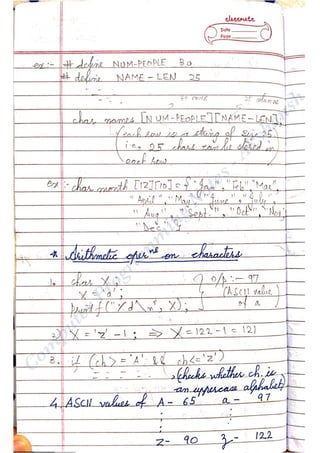 classmate
Date
Page
ex:- # define NUM-PEOPLE 30
# define NAME-LEN 25
char names [NUM-PEOPLE][NAME-LEN];
(each row is a string of size 25
i.e. 25 chars can be stored in
each row
ex:- char month [12][10] = { "Jan", "Feb" "Mar"
"April", "May", "June", "July",
"Aug", "Sept", "Oct", "Nov",
"Dec" };
* Arithmetic opern's on characters
1. char X; } o/p :- 97
X = 'a'; (ASCII value
printf ("%d\n", X); of a)
2. X = 'z' - 1; => X = 122 - 1 = 121
3. if (ch >= 'A' && ch <= 'Z')
(Checks whether ch. is
an uppercase alphabet)
4. ASCII values of A - 65 a - 97
Z - 90 z - 122